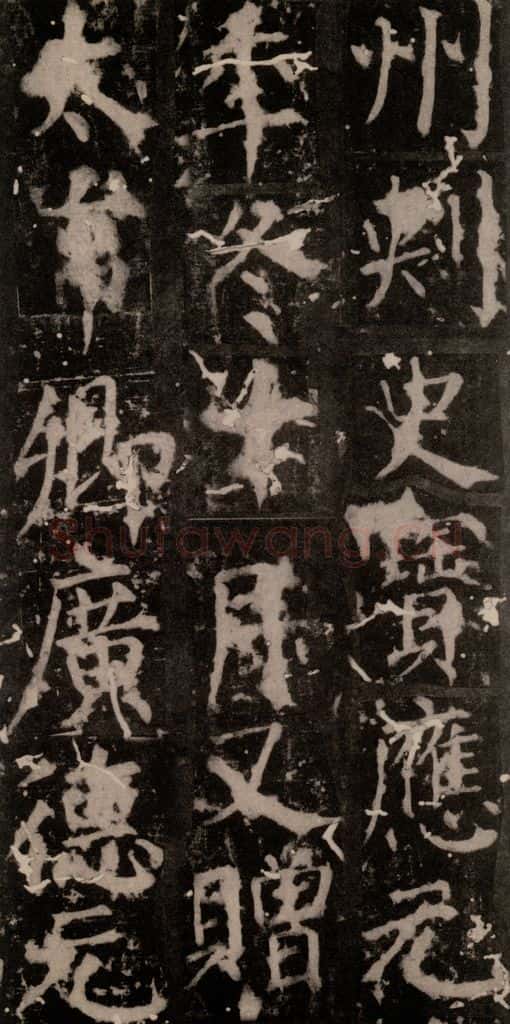 州刺史寶應元
年冬月又贈
太常卿廣德元
Shufawang.cn